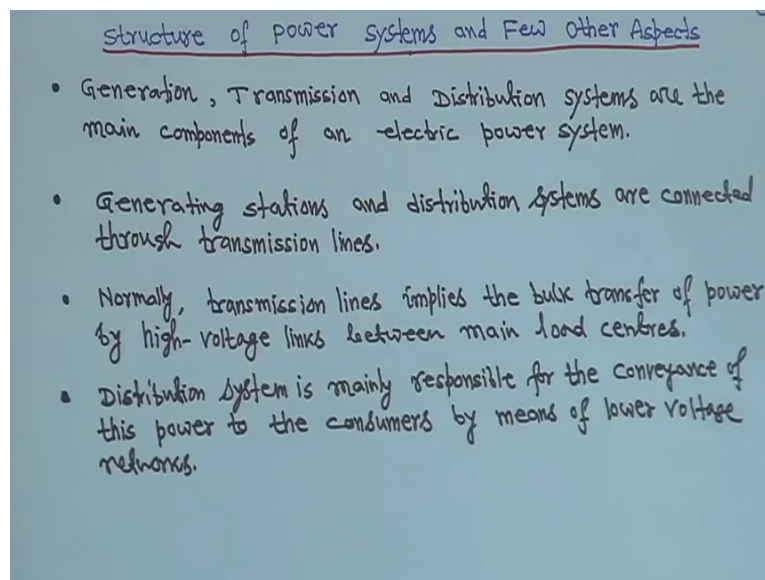 Structure of power systems and Few Other Aspects
• Generation, Transmission and Distribution systems are the
main components of an electric power system.
• Generating stations and distribution systems are connected
through transmission lines.
• Normally, transmission lines implies the bulk transfer of power
by high-voltage links between main load centres.
• Distribution system is mainly responsible for the conveyance of
this power to the consumers by means of lower voltage
networks.